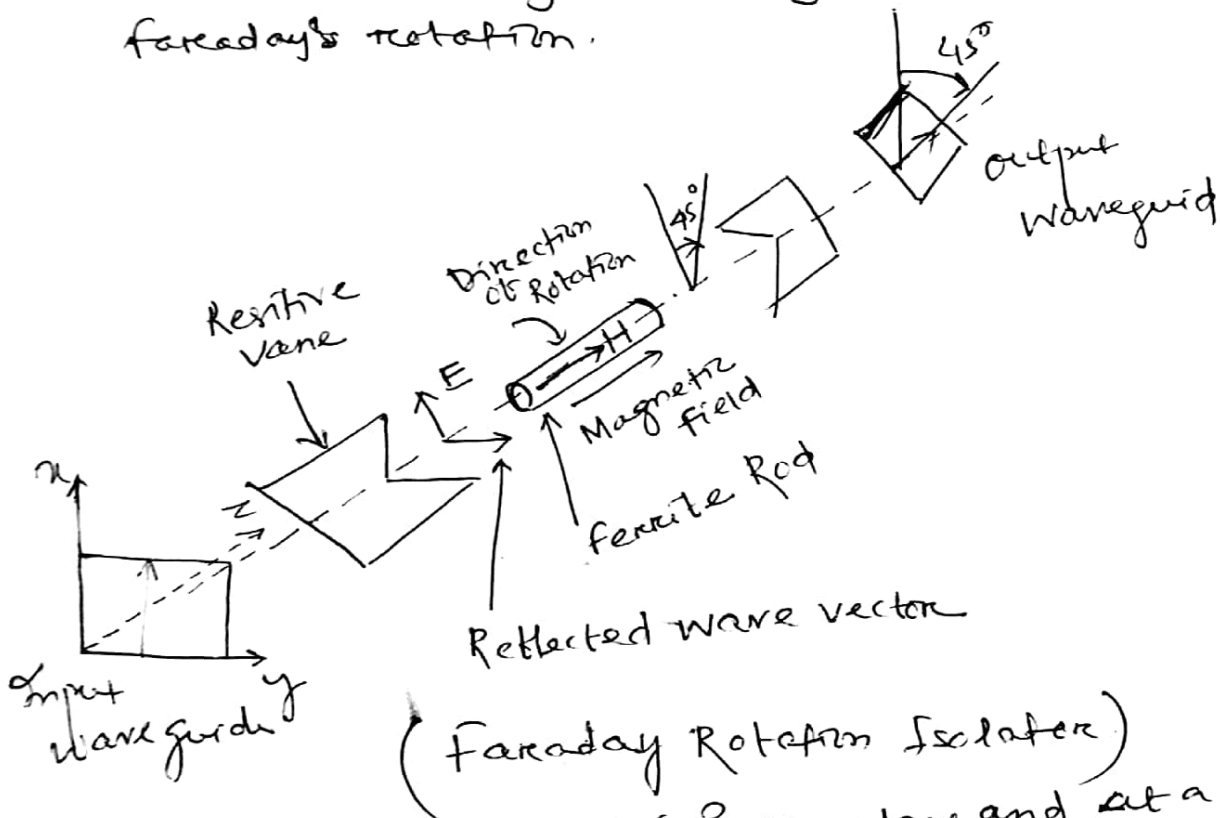 faraday's rotation.
45°
Output
Waveguid
45°
Direction
of Rotation
Resitive
Vane
E
H
Magnetic
field
Ferrite Rod
x
z
Reflected wave vector
y
Input
waveguide
(Faraday Rotation Isolater)
and at a